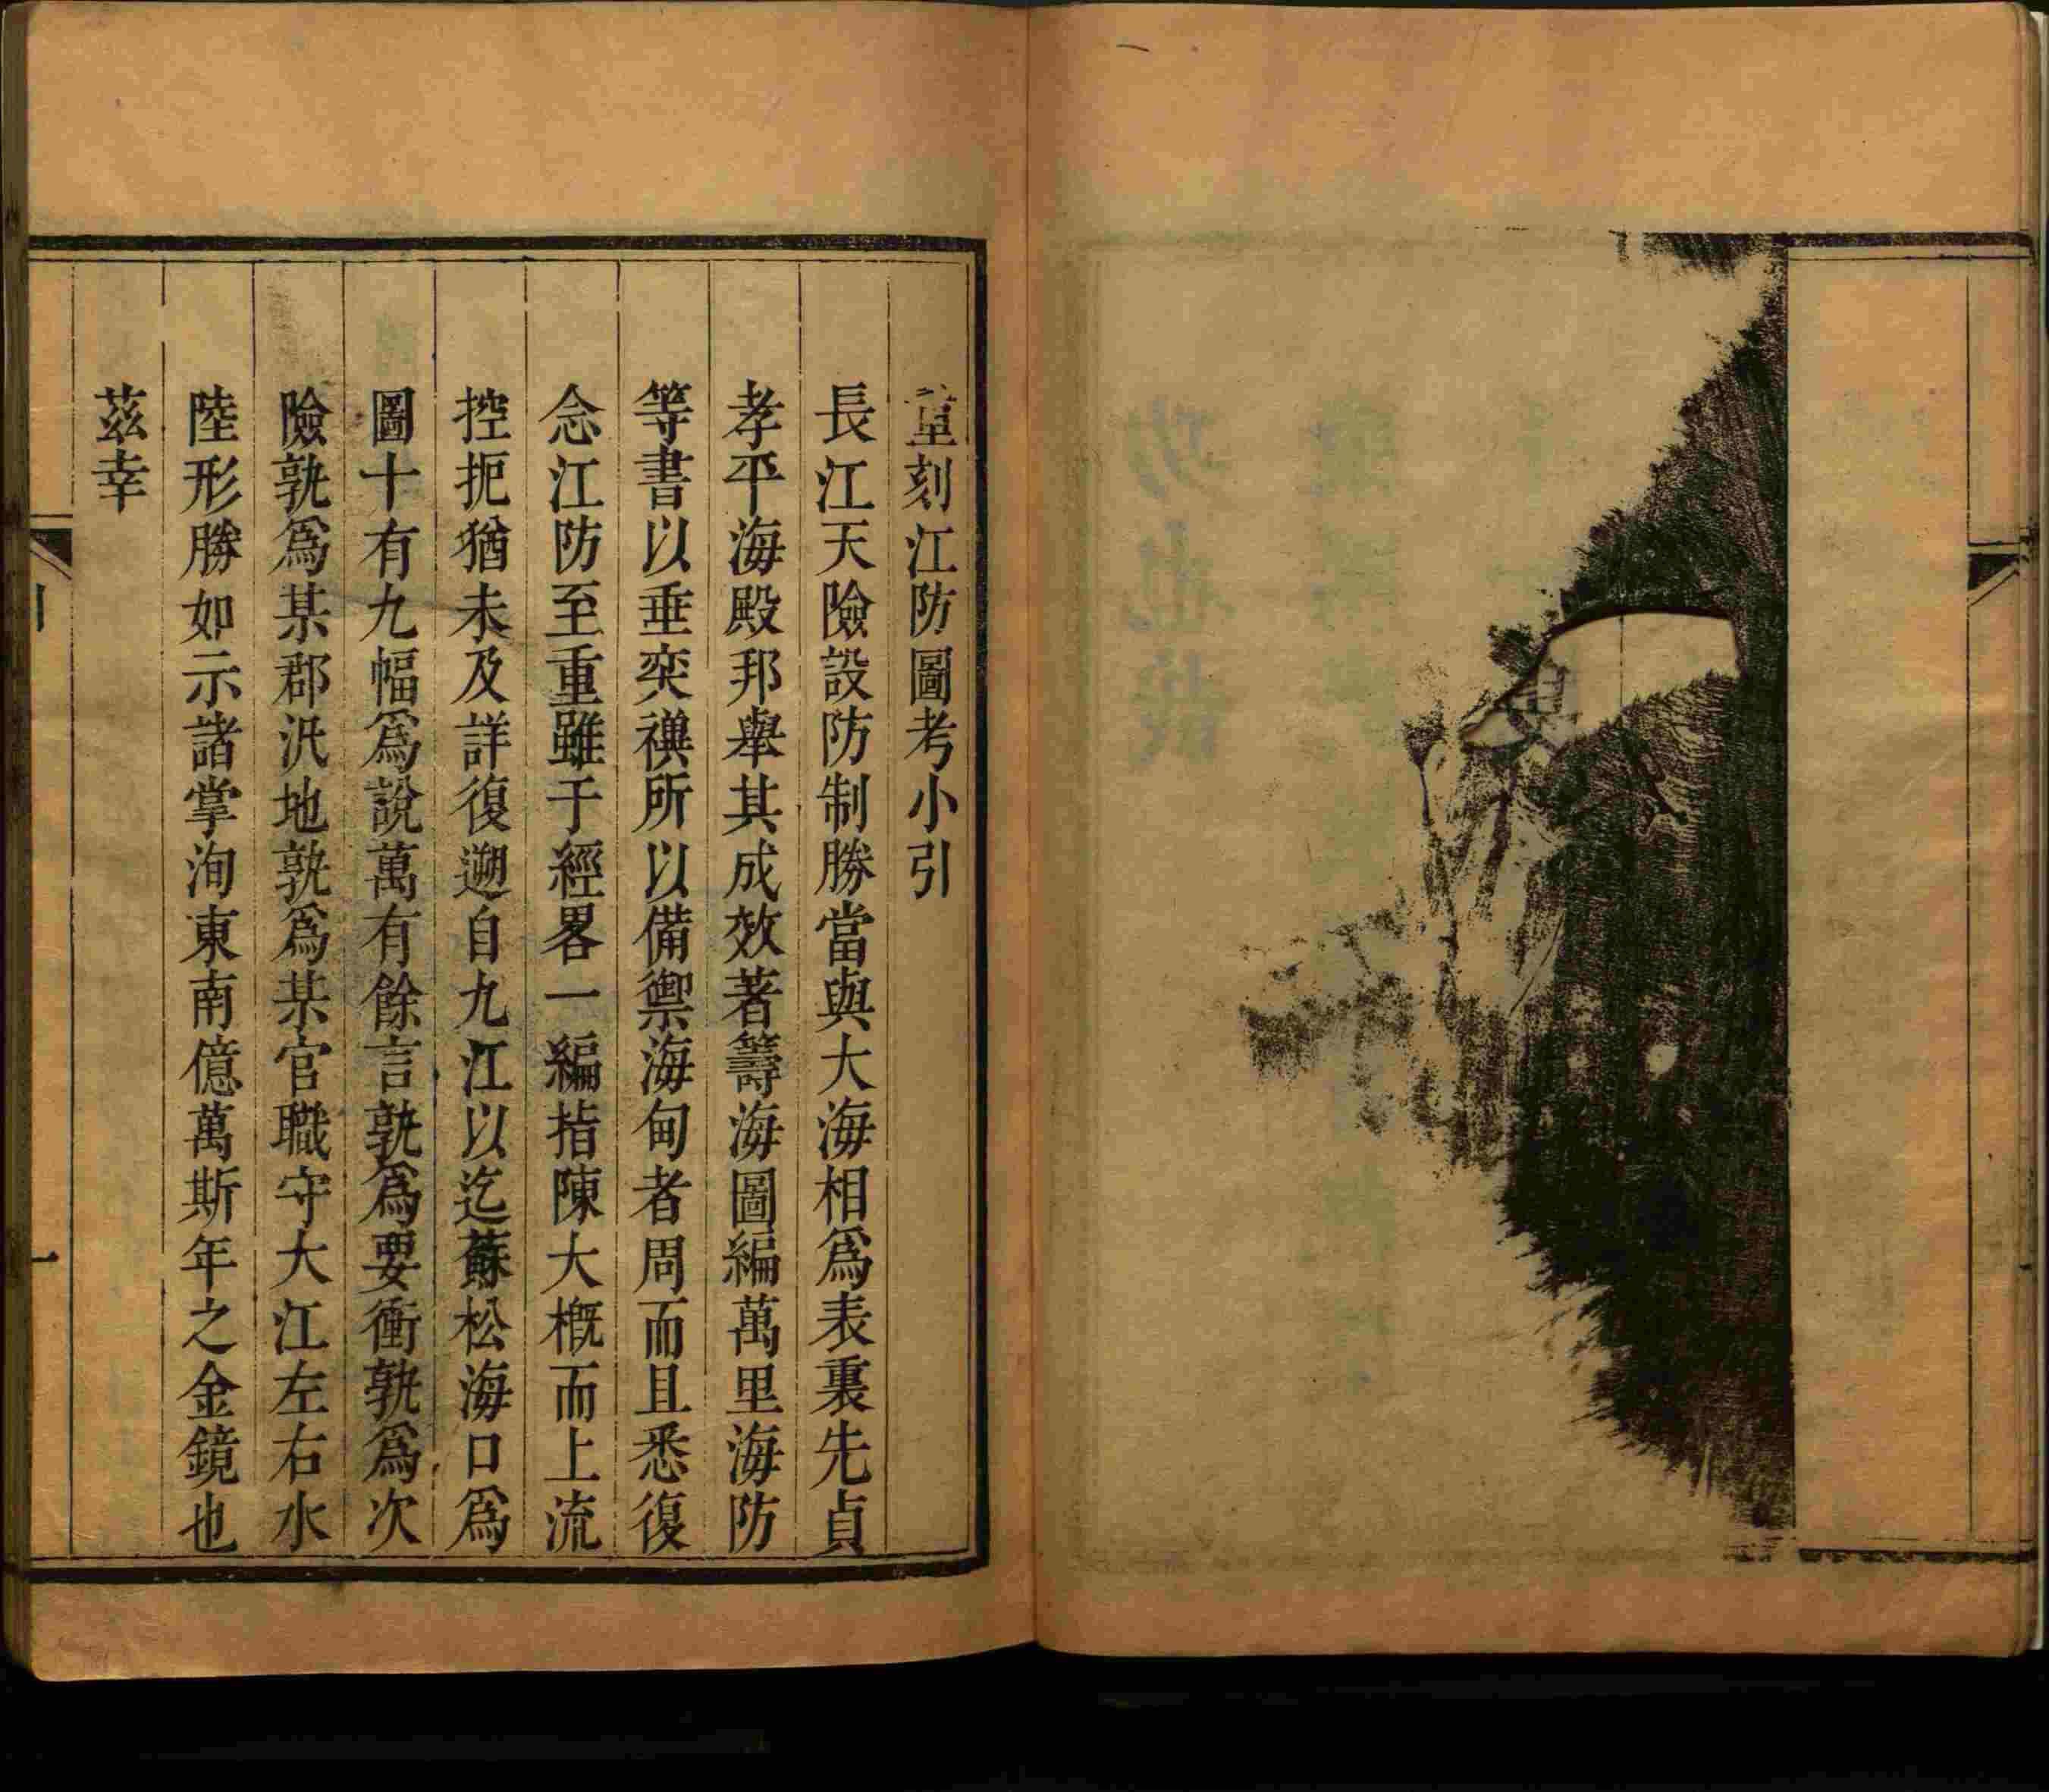 重刻江防圖考小引
長江天險設防制勝當與大海相爲表裏先貞
孝平海殿邦舉其成效著籌海圖編萬里海防
等書以垂奕禩所以備禦海甸者周而且悉復
念江防至重雖于經畧一編指陳大概而上流
控扼猶未及詳復遡自九江以迄蘇松海口爲
圖十有九幅爲說萬有餘言孰爲要衝孰爲次
險孰爲某郡汛地孰爲某官職守大江左右水
陸形勝如示諸掌洵東南億萬斯年之金鏡也
茲幸
一